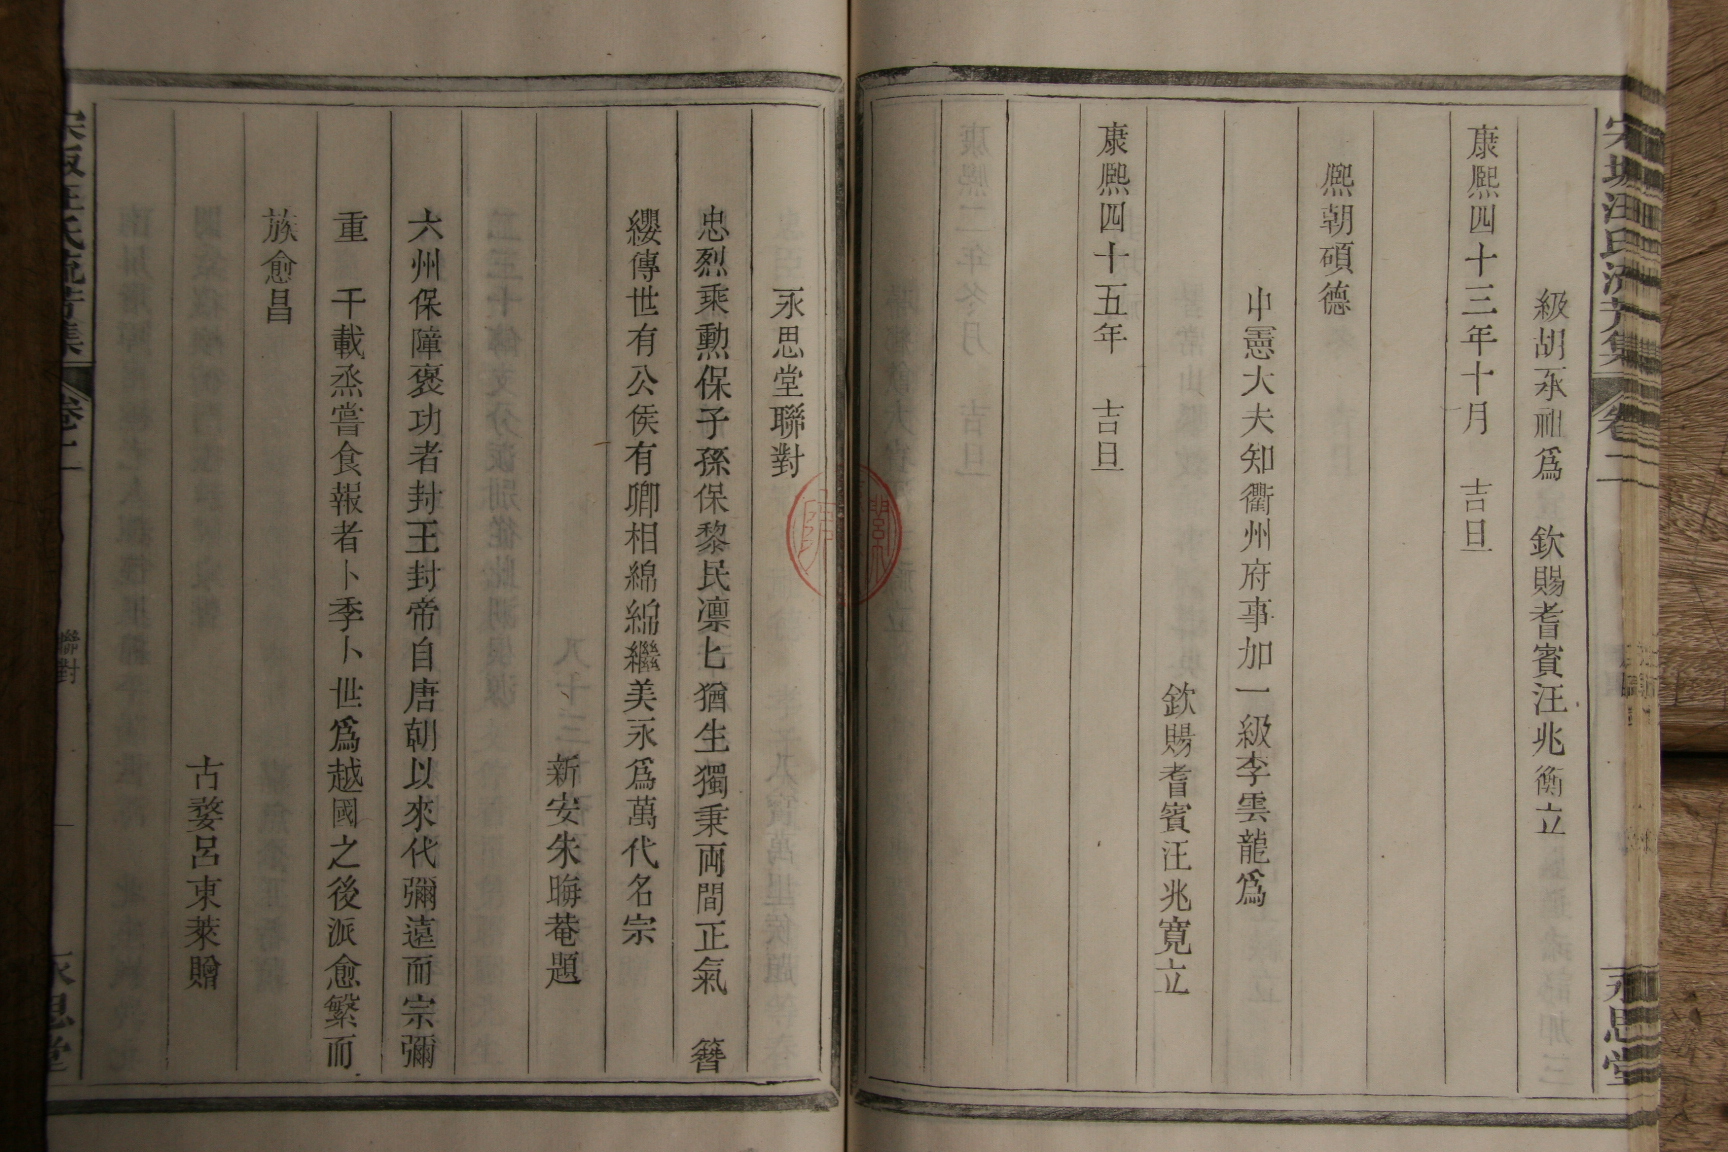 級胡永祖爲　欽賜耆賓汪兆衡立
康熈四十三年十月　吉旦
熈朝碩德
中憲大夫知衢州府事加一級李雲龍爲
欽賜耆賓汪兆寬立
康熈四十五年　吉旦
永思堂聯對
忠烈乘勲保子孫保黎民凛匕猶生獨秉両間正氣　簪
纓傳世有公侯有卿相綿綿繼美永爲萬代名宗
新安朱晦菴題
六州保障褒功者封王封帝自唐朝以來代彌遠而宗彌
重　千載烝嘗食報者卜季卜世爲越國之後派愈繁而
族愈昌
古婺呂東萊贈
汪氏流芳集
卷二
聯對
永思堂